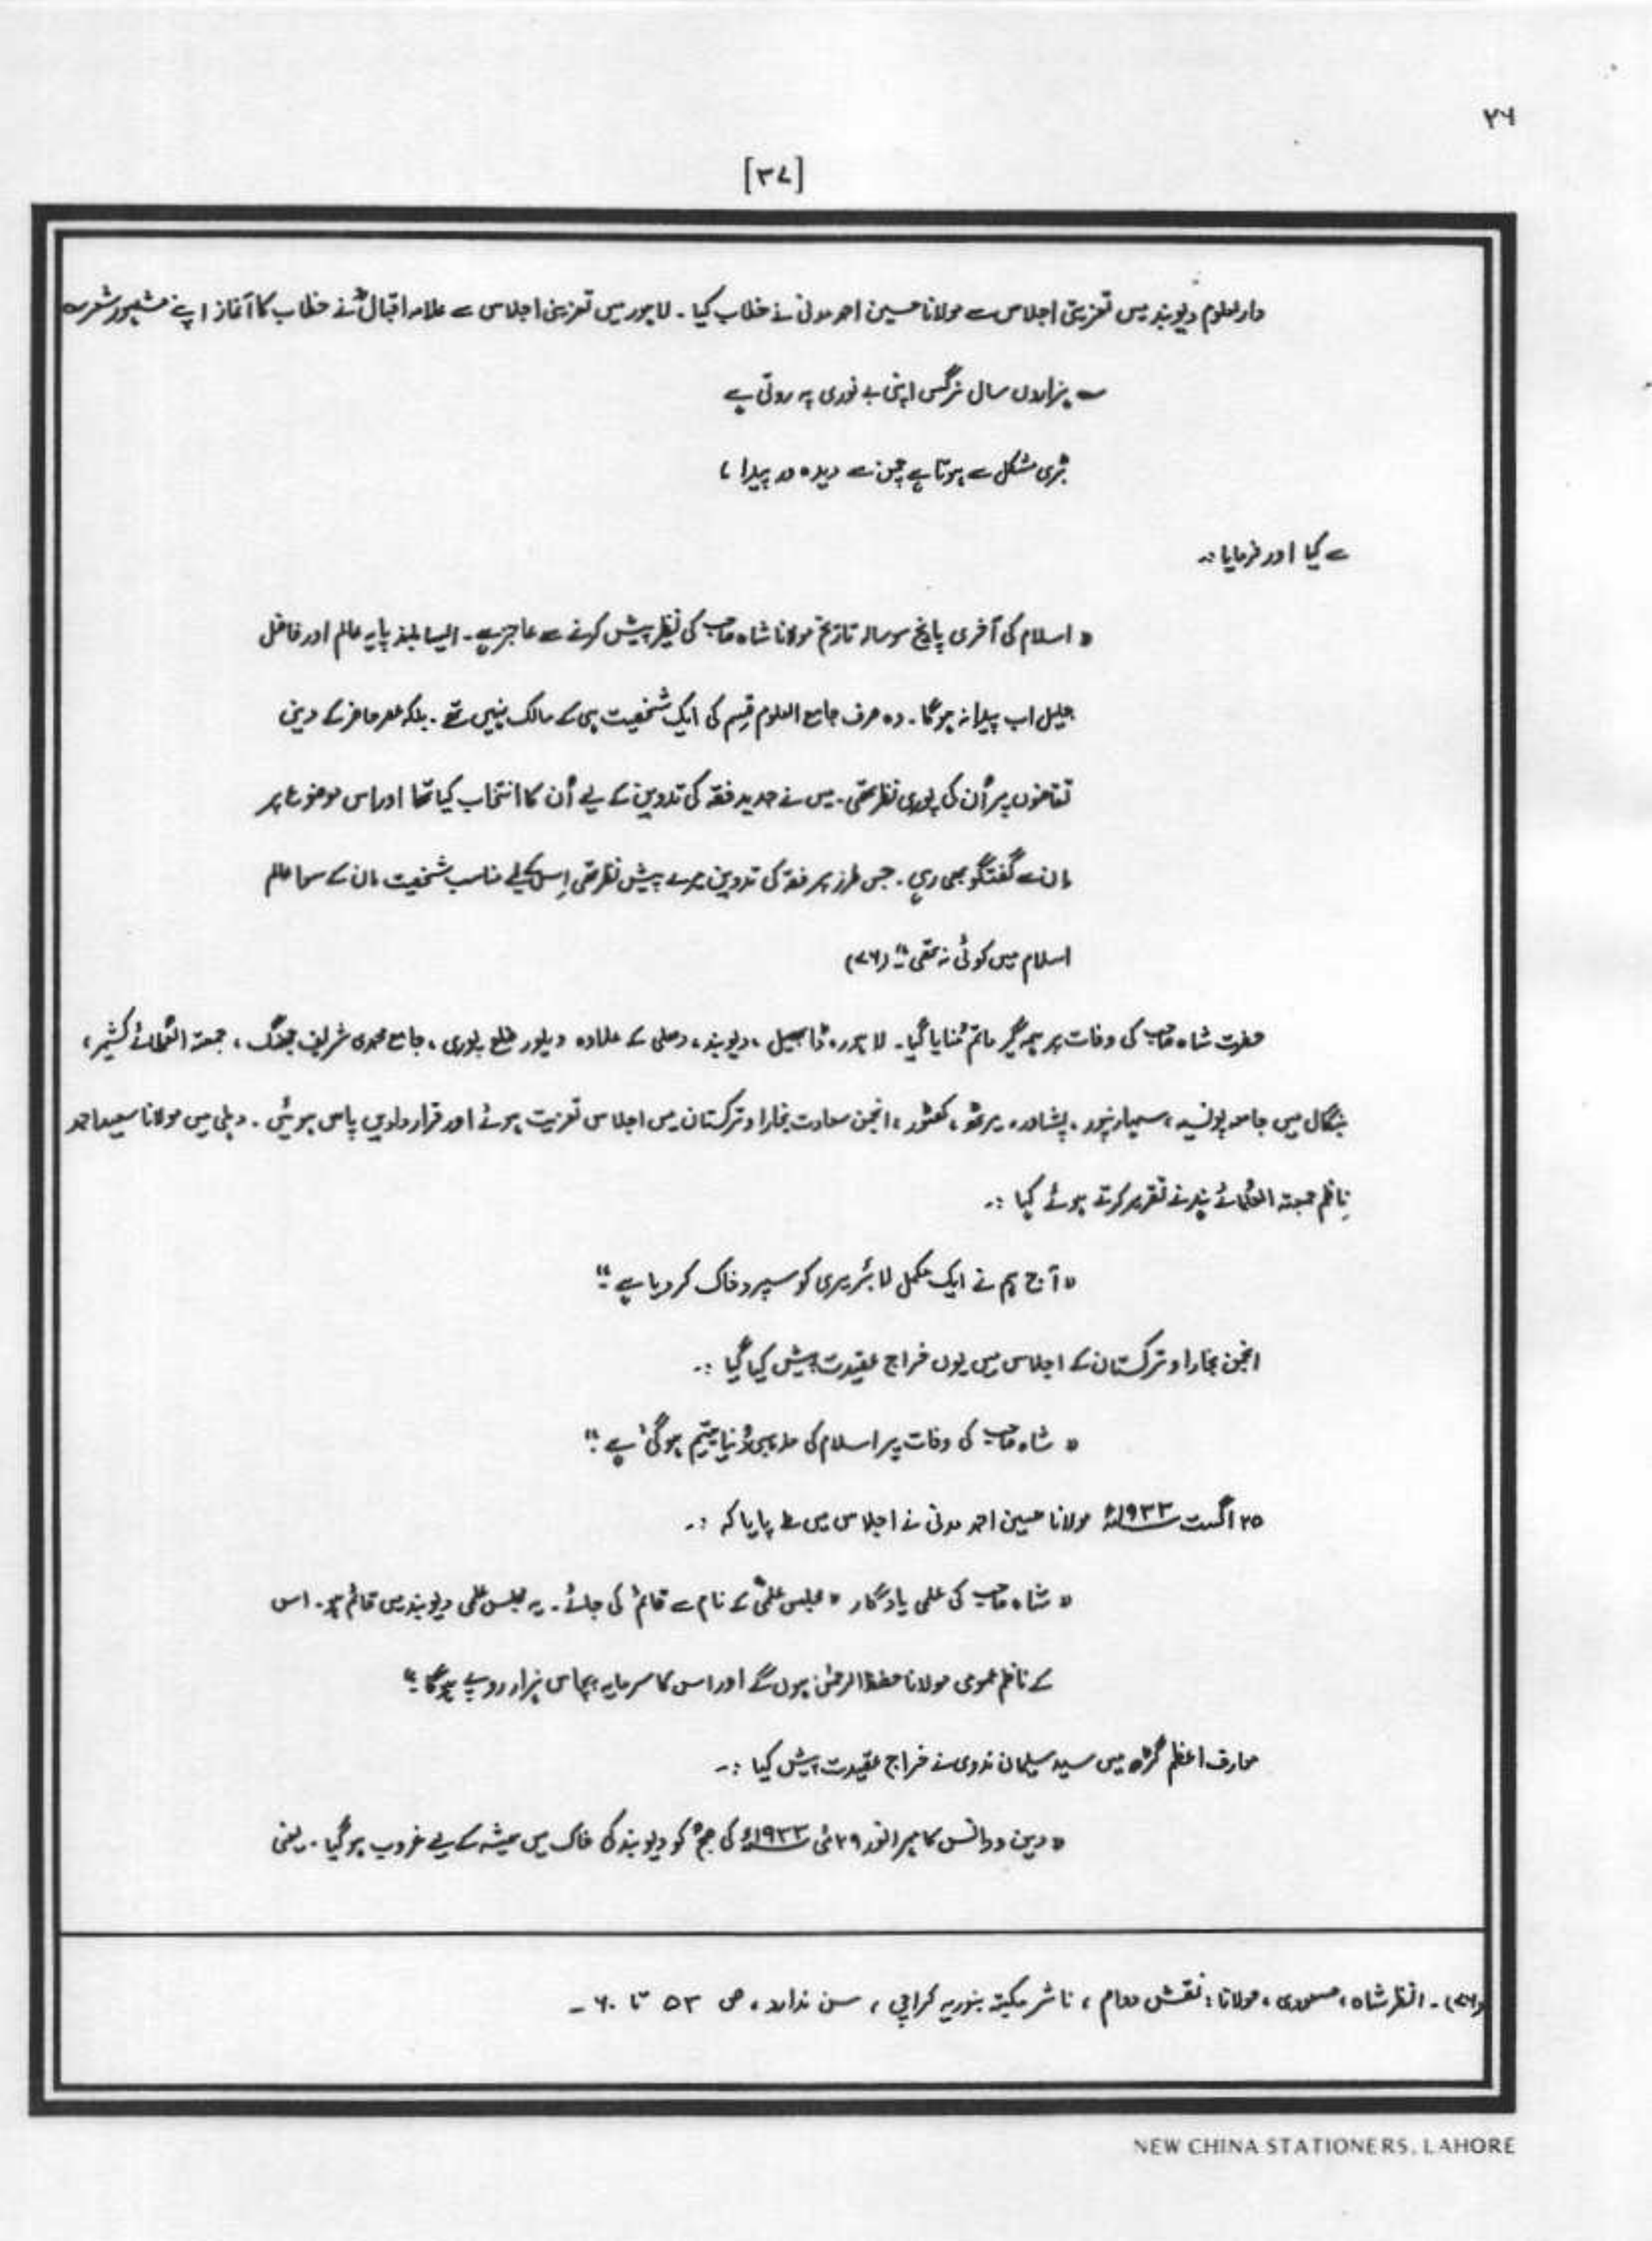 ۳۶
[۳۷]
دارالعلوم دیوبند میں تعزیتی اجلاس سے مولانا حسین احمد مدنی نے خطاب کیا۔ لاہور میں تعزیتی اجلاس سے علامہ اقبالؒ نے خطاب کا آغاز اپنے مشہور شعر سے
؎ ہزاروں سال نرگس اپنی بے نوری پہ روتی ہے
بڑی مشکل سے ہوتا ہے چمن سے دیدہ ور پیدا ،
سے کیا اور فرمایا :۔
" اسلام کی آخری پانچ سو سالہ تاریخ مولانا شاہ صاحب کی نظیر پیش کرنے سے عاجز ہے۔ ایسا بلند پایہ عالم اور فاضل
جلیل اب پیدا نہ ہوگا۔ وہ صرف جامع العلوم قسم کی ایک شخصیت ہی کے مالک نہیں تھے۔ بلکہ عصر حاضر کے دینی
تقاضوں پر اُن کی پوری نظر تھی۔ میں نے جدید فقہ کی تدوین کے لیے اُن کا انتخاب کیا تھا اور اس موضوع پر
ان سے گفتگو بھی رہی۔ جس طرز پر فقہ کی تدوین میرے پیش نظر تھی اِس کیلئے مناسب شخصیت ان کے سوا عالم
اسلام میں کوئی نہ تھی۔" (۷۶)
حضرت شاہ صاحب کی وفات پر ہمہ گیر ماتم مُنایا گیا۔ لاہور، ڈابھیل، دیوبند، دھلی کے علاوہ ویلور ضلع پوری، جامع محمدی شریف جھنگ، جمعتہ العُلمائے کشمیر،
بنگال میں جامعہ یونسیہ، سہارنپور، پشاور، میرٹھ، کھٹور، انجمن سعادت بخارا و ترکستان میں اجلاس تعزیت ہوئے اور قراردادیں پاس ہوئیں۔ دہلی میں مولانا سعید احمد
ناظم جمعتہ العُلمائے ہند نے تقریر کرتے ہوئے کہا :۔
" آج ہم نے ایک مکمل لائبریری کو سپرد خاک کر دیا ہے۔"
انجمن بخارا و ترکستان کے اجلاس میں یوں خراج عقیدت پیش کیا گیا :۔
" شاہ صاحب کی وفات پر اسلام کی مذہبی دُنیا یتیم ہوگئی ہے۔"
۲۵ اگست ۱۹۳۳ء مولانا حسین احمد مدنی نے اجلاس میں طے پایا کہ :۔
" شاہ صاحب کی علمی یادگار " مجلس علمی" کے نام سے قائم کی جائے۔ یہ مجلس علمی دیوبند میں قائم ہو۔ اس
کے ناظم عمومی مولانا حفظ الرحمٰن ہوں گے اور اس کا سرمایہ پچاس ہزار روپے ہوگا۔"
معارف اعظم گڑھ میں سید سلیمان ندوی نے خراج عقیدت پیش کیا :۔
" دین و دانش کا مہر انور ۲۹ مئی ۱۹۳۳ء کی صبح کو دیوبند کی خاک میں ہمیشہ کے لیے غروب ہوگیا۔ یعنی
(۷۶)۔ انظر شاہ، مسعودی، مولانا : نقش دوام ، ناشر مکتبہ بنوریہ کراچی ، سن ندارد ، ص ۵۳ تا ۶۰ ۔
NEW CHINA STATIONERS, LAHORE